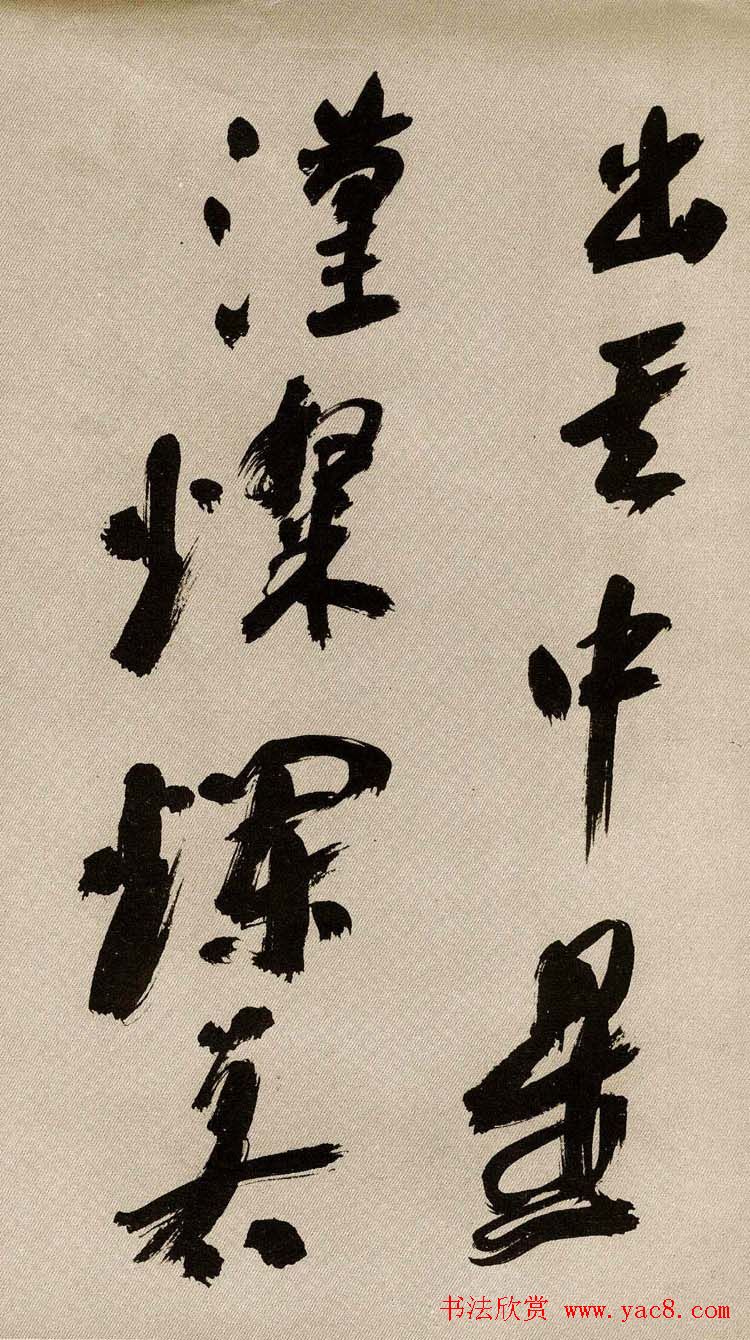 出其中星
漢燦爛若
书法欣赏 www.yac8.com